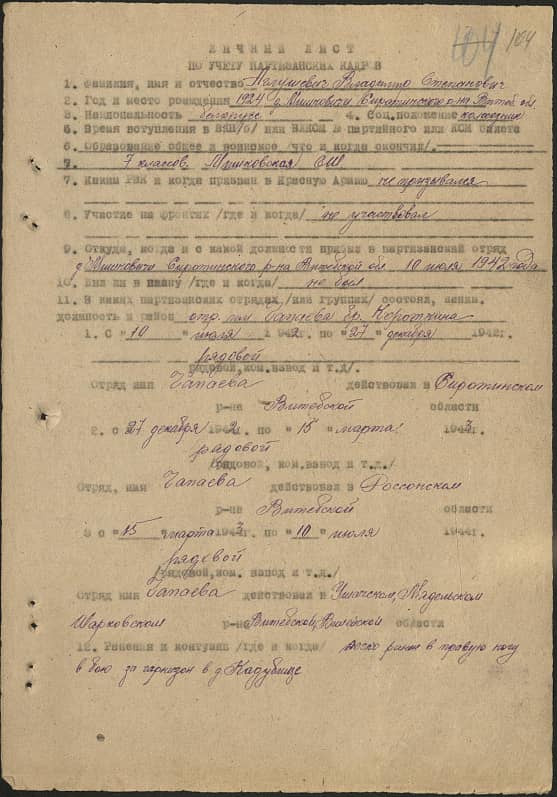 104 104
ЛИЧНЫЙ ЛИСТ
ПО УЧЕТУ ПАРТИЗАНСКИХ КАДРОВ
1. Фамилия, имя и отчество Владимир Степанович
2. Год и место рождения 1924 д. Мишневичи Сиротинского р-на Витеб. обл.
3. Национальность белорус 4. Соц.положение колхозник
5. Время вступления в ВКП/б/ или ВЛКСМ № партийного или КСМ билета
6. Образование общее и воинское /что и когда окончил/.
7 классов, СШ
7. Каким РВК и когда призван в Красную Армию не призывался
8. Участие на фронтах /где и когда/ не участвовал
9. Откуда, когда и с какой должности прибыл в партизанский отряд
д. Мишневичи Сиротинского р-на Витебской обл. 10 июля 1942 года
10. Был ли в плену /где и когда/ не был
11. В каких партизанских отрядах /или группах/ состоял, звание,
должность и район отр. им. Чапаева бр. Короткина
1. С "10" июля 1942 по "27" декабря 1942г.
рядовой
рядовой, ком.взвод и т.д./.
Отряд имя Чапаева действовал в Сиротинском
р-на Витебской области
2. с 27 декабря 1942 г. по "15" марта 1943г.
рядовой
/рядовой, ком.взвод и т.д./
Отряд, имя Чапаева действовал в Россонском
р-на Витебской области
3 с "15" марта 1943г. по "10" июля 1944г.
рядовой
/рядовой,ком. взвод и т.д./
Отряд имя Чапаева действовал в Ушачском, Мядельском
Шарковском р-на Витебской, Вилейской области
12. Ранения и контузии /где и когда/ легко ранен в правую ногу
в бою за гарнизон в д.